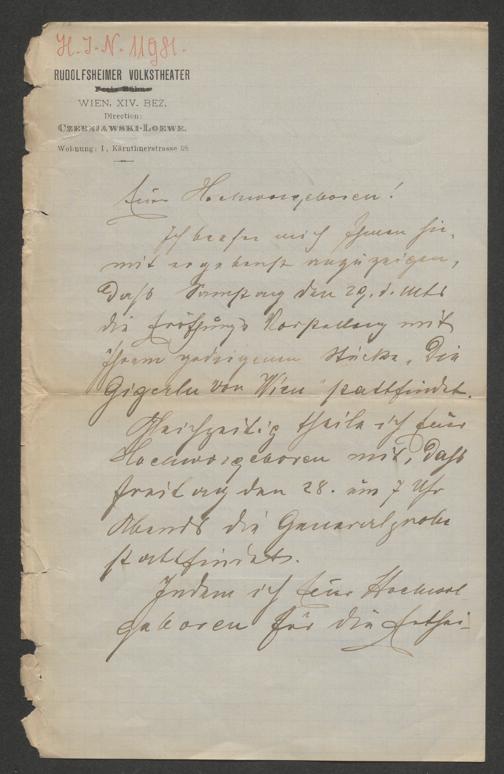 H. I. N. 11981.
RUDOLFSHEIMER VOLKSTHEATER
WIEN, XIV. BEZ.
Direction:
CZERNJAWSKI-LOEWE.
Wohnung: I., Kärnthnerstrasse
Euer Hochworgeboren!
Ich beehre mich Ihnen hie-
mit ergebenst anzuzeigen,
daß Samstag den 29. d. Mts
die Eröffnungs Vorstellung mit
Ihrem Stücke, Die
Gigerln von Wien" stattfindet.
Gleichzeitig theile ich Euer
Hochworgeboren mit, daß
Freitag den 28. um 7 Uhr
Abends die Generalprobe
stattfindet.
Indem ich Euer Hochwol-
geboren für die Erthei-